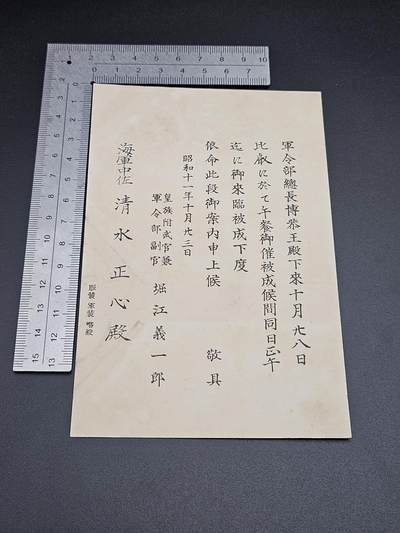 軍令部總長博恭王殿下來十月廿八日
比叡に於て午餐御催被成候間同日正午
迄に御來臨被成下度
依命此段御案内申上候 敬具
昭和十一年十月廿三日
皇族附武官兼
軍令部副官 堀江義一郎
海軍中佐 清水正心殿
服裝 軍裝 略綬
0 1 2 3 4 5 6 7 8 9 10
15 14 13 12 11 10